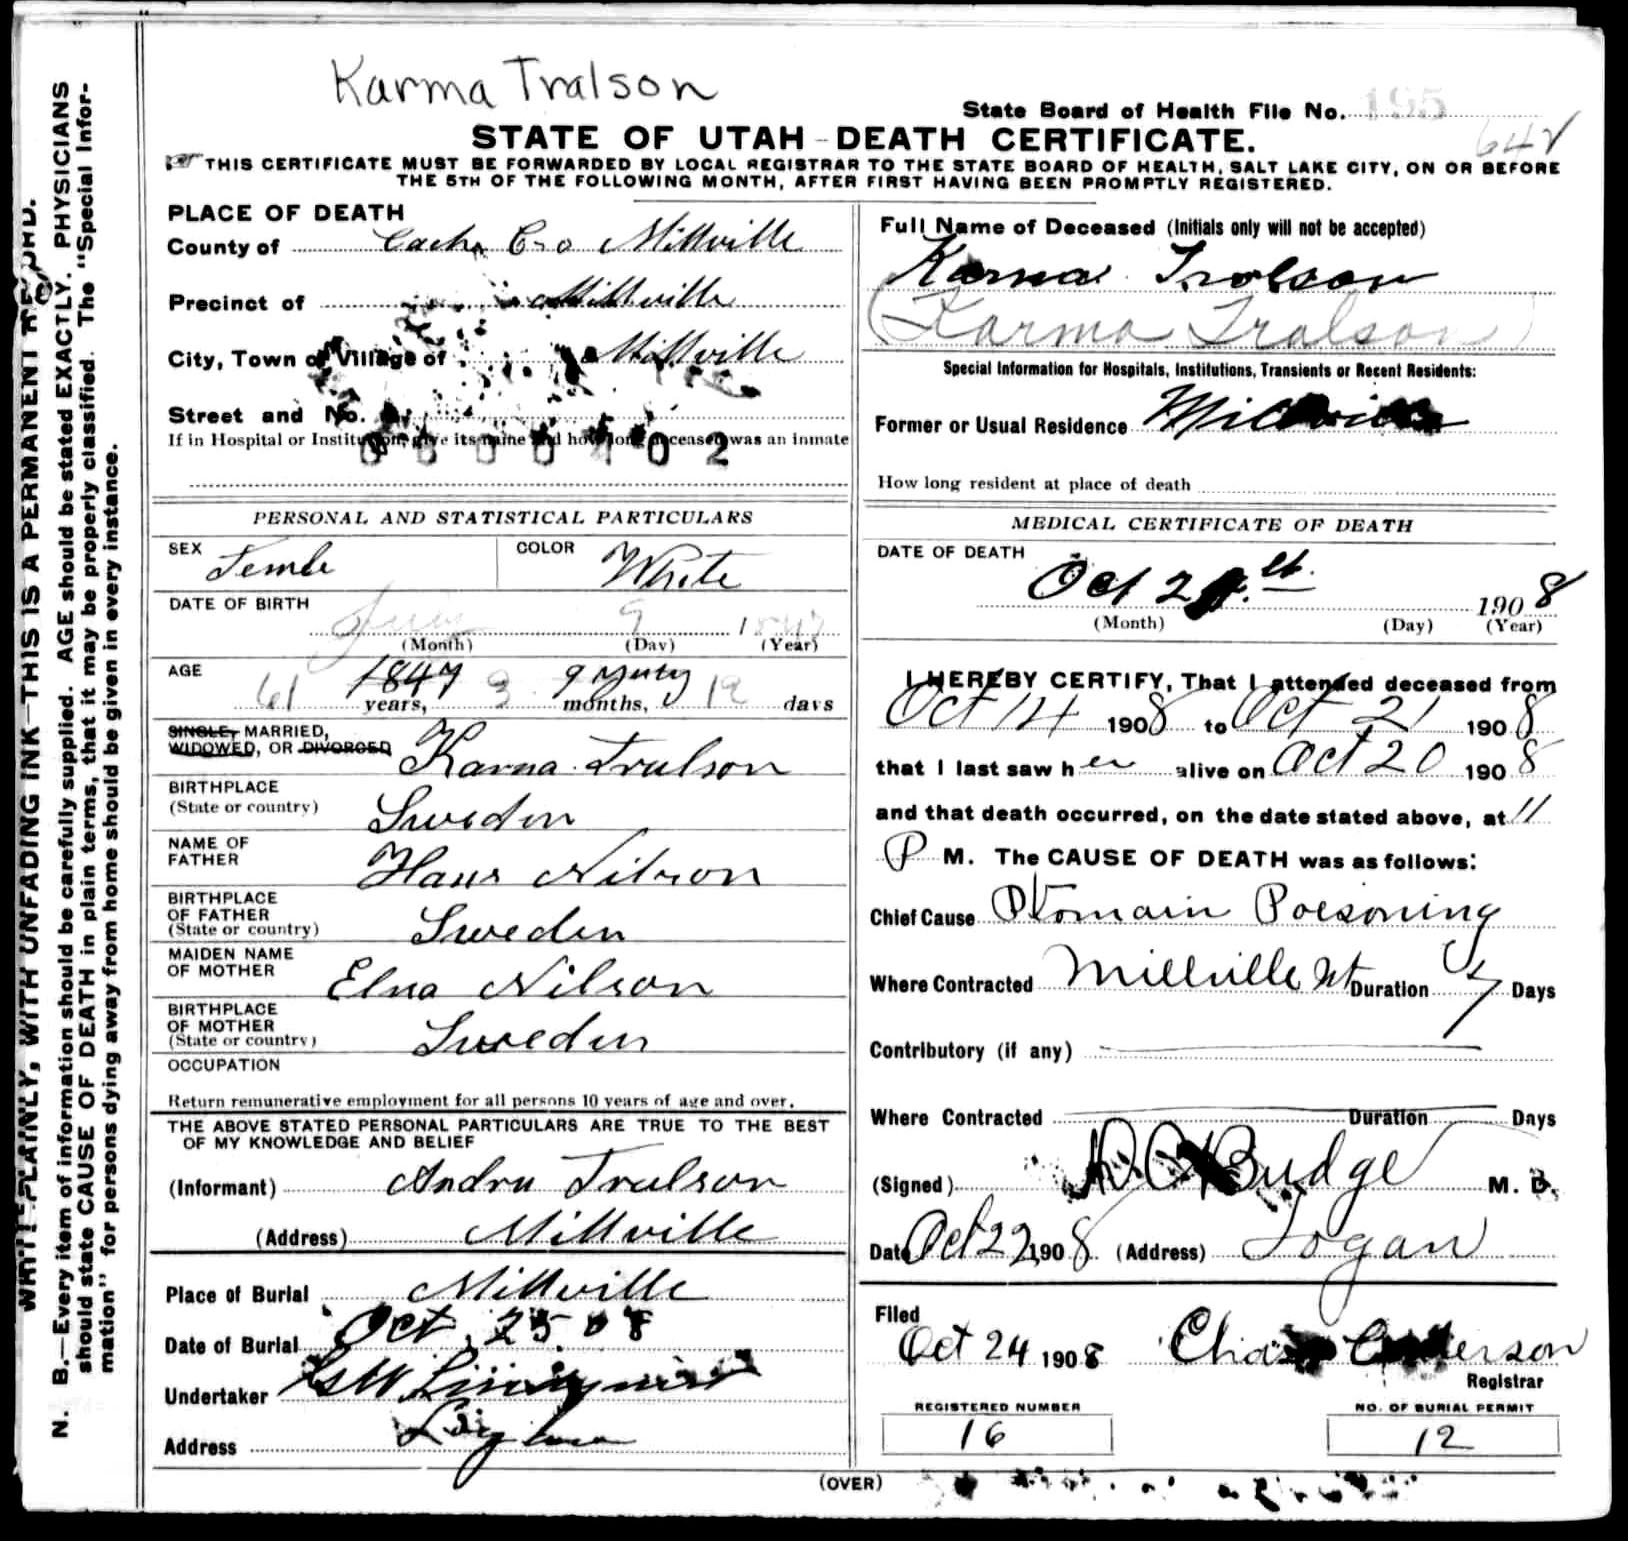 Karma Tralson
State Board of Health File No. 195
STATE OF UTAH - DEATH CERTIFICATE.
64
THIS CERTIFICATE MUST BE FORWARDED BY LOCAL REGISTRAR TO THE STATE BOARD OF HEALTH, SALT LAKE CITY, ON OR BEFORE
THE 5TH OF THE FOLLOWING MONTH, AFTER FIRST HAVING BEEN PROMPTLY REGISTERED.
WRITE PLAINLY, WITH UNFADING INK—THIS IS A PERMANENT RECORD.
N. B.—Every item of information should be carefully supplied. AGE should be stated EXACTLY. PHYSICIANS
should state CAUSE OF DEATH in plain terms, that it may be properly classified. The "Special Infor-
mation" for persons dying away from home should be given in every instance.
PLACE OF DEATH
County of Cache Co Millville
Precinct of Millville
City, Town or Village of Millville
Street and No.
If in Hospital or Institution, give its name and how long deceased was an inmate
0600402
PERSONAL AND STATISTICAL PARTICULARS
SEX Femle COLOR White
DATE OF BIRTH
9 1847
(Month) (Day) (Year)
AGE
61 1847 3 9 12
years, months, days
SINGLE, MARRIED,
WIDOWED, OR DIVORCED Karna Trulson
BIRTHPLACE
(State or country) Sweden
NAME OF
FATHER Hans Nilson
BIRTHPLACE
OF FATHER
(State or country) Sweden
MAIDEN NAME
OF MOTHER Elna Nilson
BIRTHPLACE
OF MOTHER
(State or country) Sweden
OCCUPATION
Return remunerative employment for all persons 10 years of age and over.
THE ABOVE STATED PERSONAL PARTICULARS ARE TRUE TO THE BEST
OF MY KNOWLEDGE AND BELIEF
(Informant) Andru Trulson
(Address) Millville
Place of Burial Millville
Date of Burial Oct. 25 08
Undertaker
Address
Full Name of Deceased (Initials only will not be accepted)
Karna Trolson
(Karma Tralson)
Special Information for Hospitals, Institutions, Transients or Recent Residents:
Former or Usual Residence Millville
How long resident at place of death
MEDICAL CERTIFICATE OF DEATH
DATE OF DEATH
Oct 2 st. 1908
(Month) (Day) (Year)
I HEREBY CERTIFY, That I attended deceased from
Oct 14 1908 to Oct 21 1908
that I last saw her alive on Oct 20 1908
and that death occurred, on the date stated above, at 11
P M. The CAUSE OF DEATH was as follows:
Chief Cause Ptomain Poisoning
Where Contracted Millville Ut Duration 7 Days
Contributory (if any)
Where Contracted Duration Days
(Signed) D C Budge M. D.
Date Oct 22 1908 (Address) Logan
Filed
Oct 24 1908 Chas Anderson
Registrar
REGISTERED NUMBER NO. OF BURIAL PERMIT
16 12
(OVER)